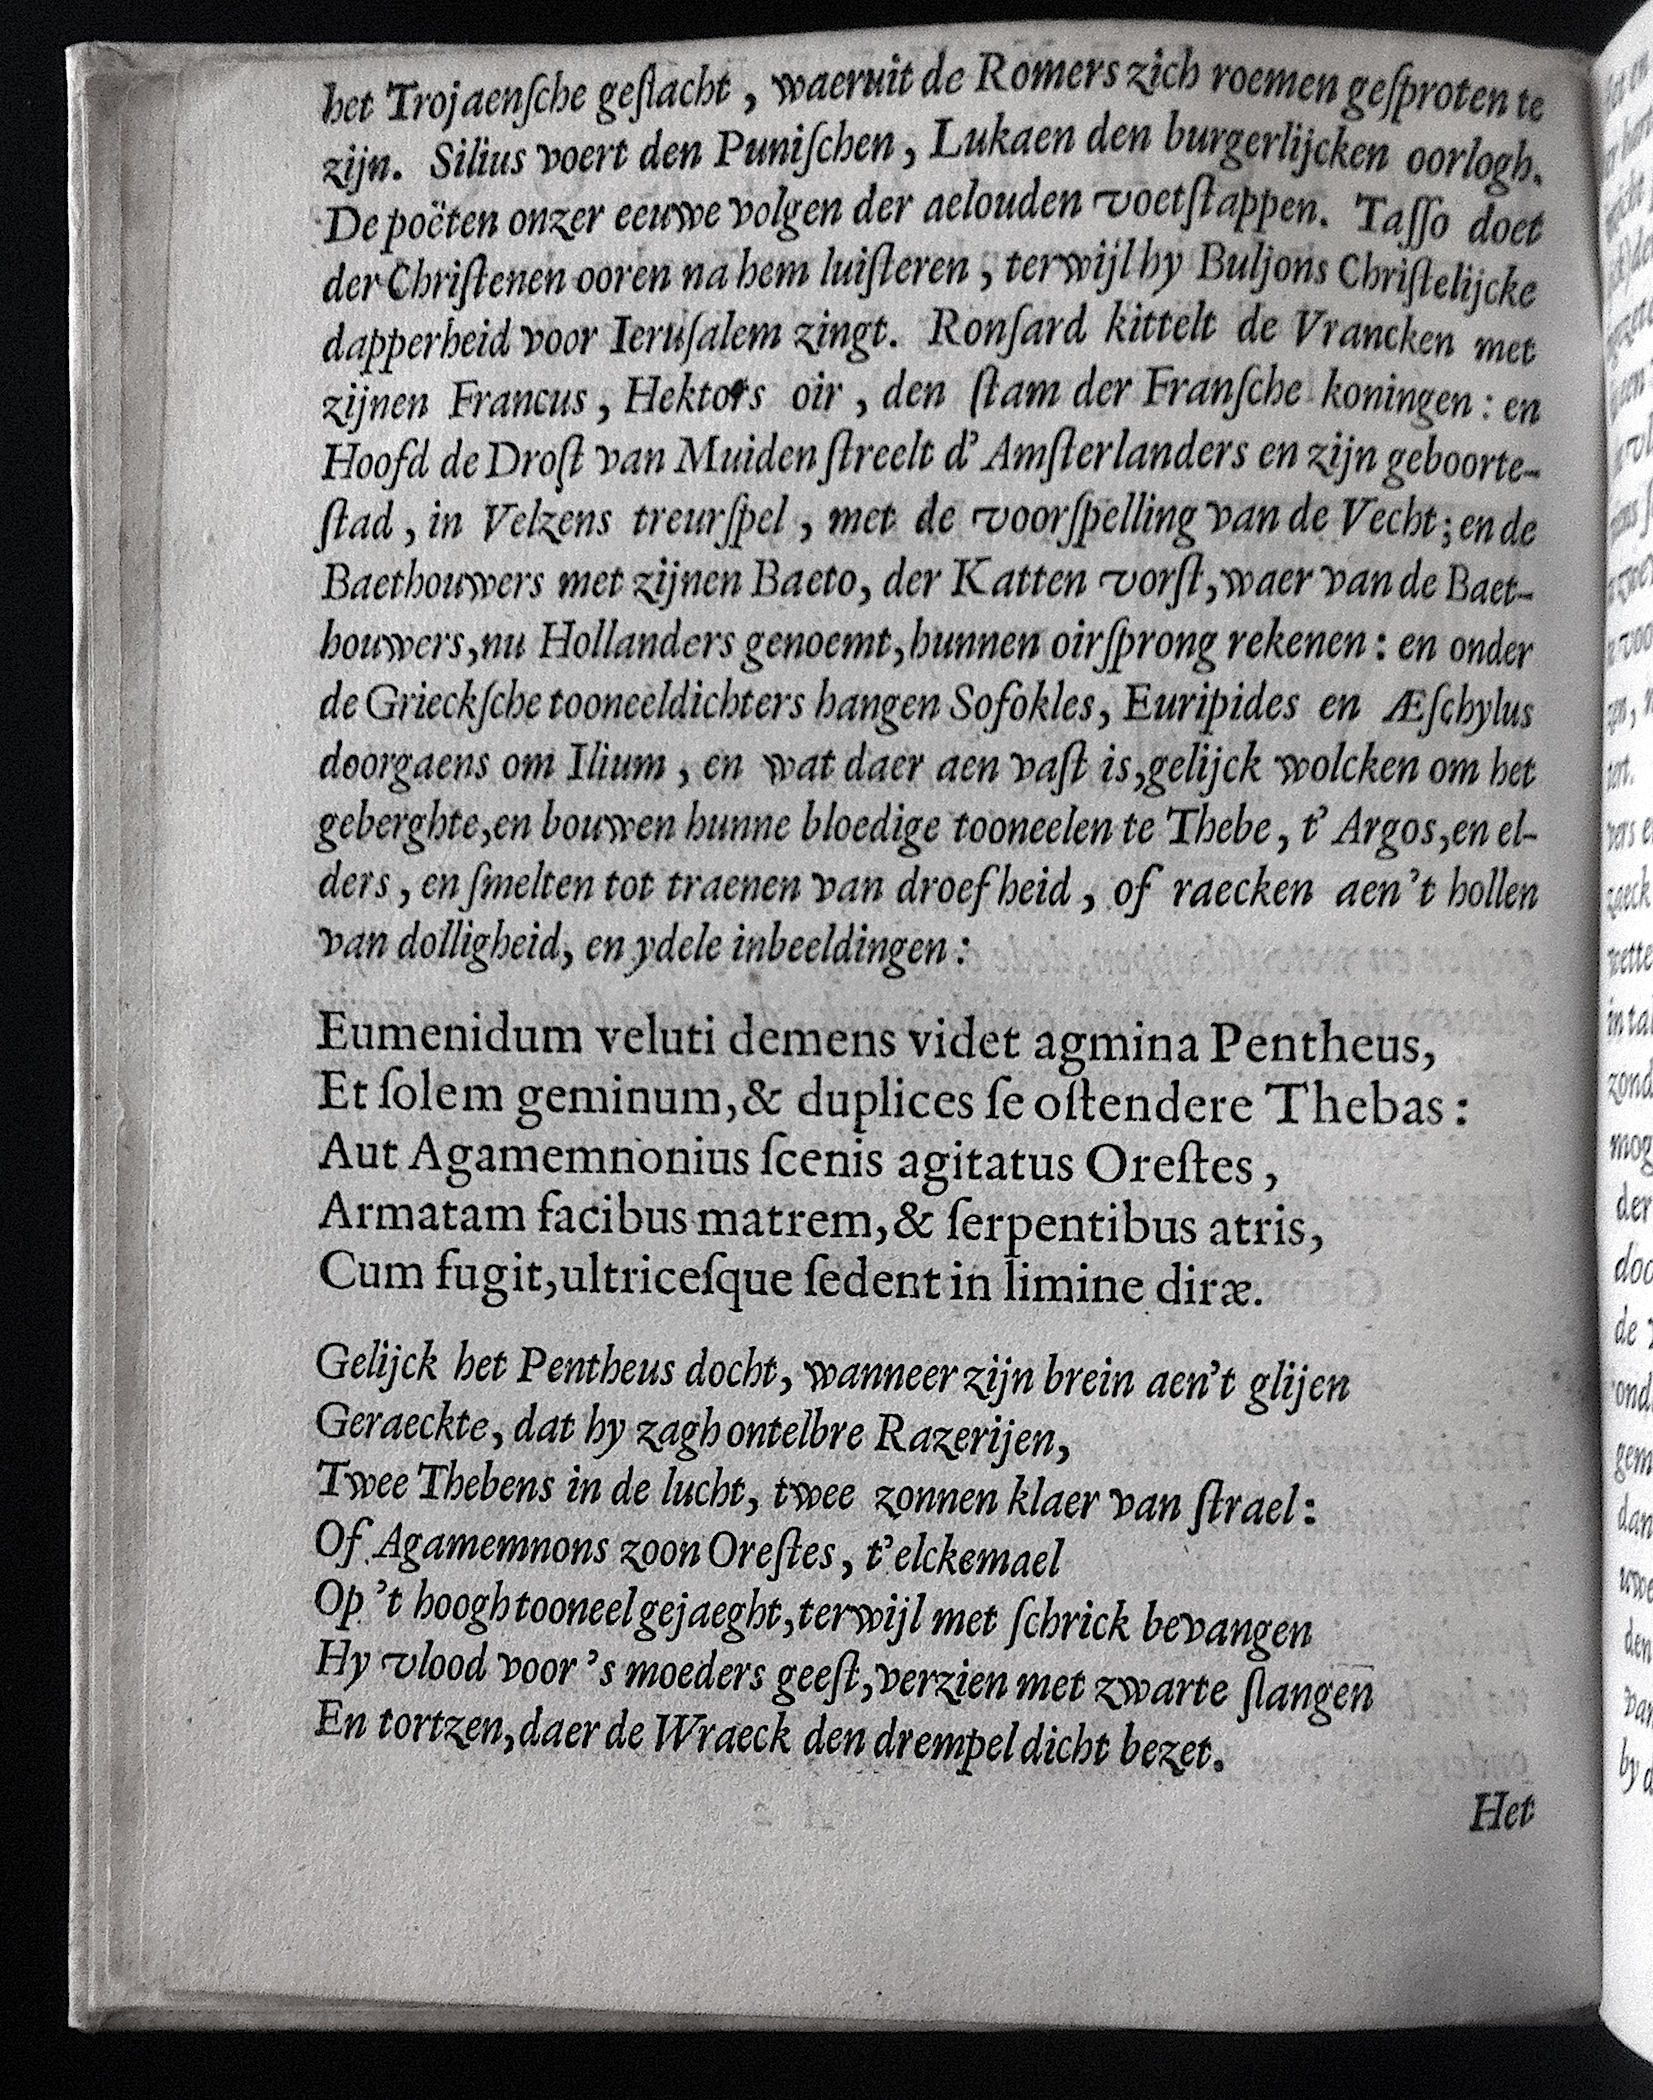 het Trojaenſche geſlacht, waeruit de Romers zich roemen geſproten te
zijn. Silius voert den Puniſchen, Lukaen den burgerlijcken oorlogh.
De poëten onzer eeuwe volgen der aelouden voetſtappen. Taſſo doet
der Chriſtenen ooren na hem luiſteren, terwijl hy Buljons Chriſtelijcke
dapperheid voor Ieruſalem zingt. Ronſard kittelt de Vrancken met
zijnen Francus, Hektors oir, den ſtam der Franſche koningen: en
Hoofd de Droſt van Muiden ſtreelt d'Amſterlanders en zijn geboorte-
ſtad, in Velzens treurſpel, met de voorſpelling van de Vecht; en de
Baethouwers met zijnen Baeto, der Katten vorſt, waer van de Baet-
houwers, nu Hollanders genoemt, hunnen oirſprong rekenen: en onder
de Grieckſche tooneeldichters hangen Sofokles, Euripides en Æſchylus
doorgaens om Ilium, en wat daer aen vaſt is, gelijck wolcken om het
geberghte, en bouwen hunne bloedige tooneelen te Thebe, t'Argos, en el-
ders, en ſmelten tot traenen van droefheid, of raecken aen't hollen
van dolligheid, en ydele inbeeldingen:
Eumenidum veluti demens videt agmina Pentheus,
Et ſolem geminum, & duplices ſe oſtendere Thebas:
Aut Agamemnonius ſcenis agitatus Oreſtes,
Armatam facibus matrem, & ſerpentibus atris,
Cum fugit, ultriceſque ſedent in limine diræ.
Gelijck het Pentheus docht, wanneer zijn brein aen't glijen
Geraeckte, dat hy zagh ontelbre Razerijen,
Twee Thebens in de lucht, twee zonnen klaer van ſtrael:
Of Agamemnons zoon Oreſtes, t'elckemael
Op 't hoogh tooneel gejaeght, terwijl met ſchrick bevangen
Hy vlood voor 's moeders geeſt, verzien met zwarte ſlangen
En tortzen, daer de Wraeck den drempel dicht bezet.
Het